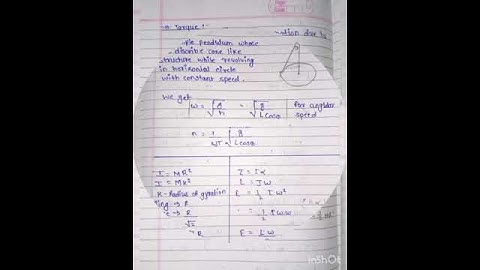 → Torque :-
- dion due to
- ple pendulum whose
- discribe cone like
structure while revolving
in horizonial circle
with constant speed.
we get
ω = √g/h = √g/Lcosθ for angular speed
n = 1/2π √g/Lcosθ
I = MR² τ = Iα
I = MK² L = Iω
K - Radius of gyration E = 1/2 Iω²
ring → R
c → R/√2 = 1/2 Iωω
R E = Lω
InShOt